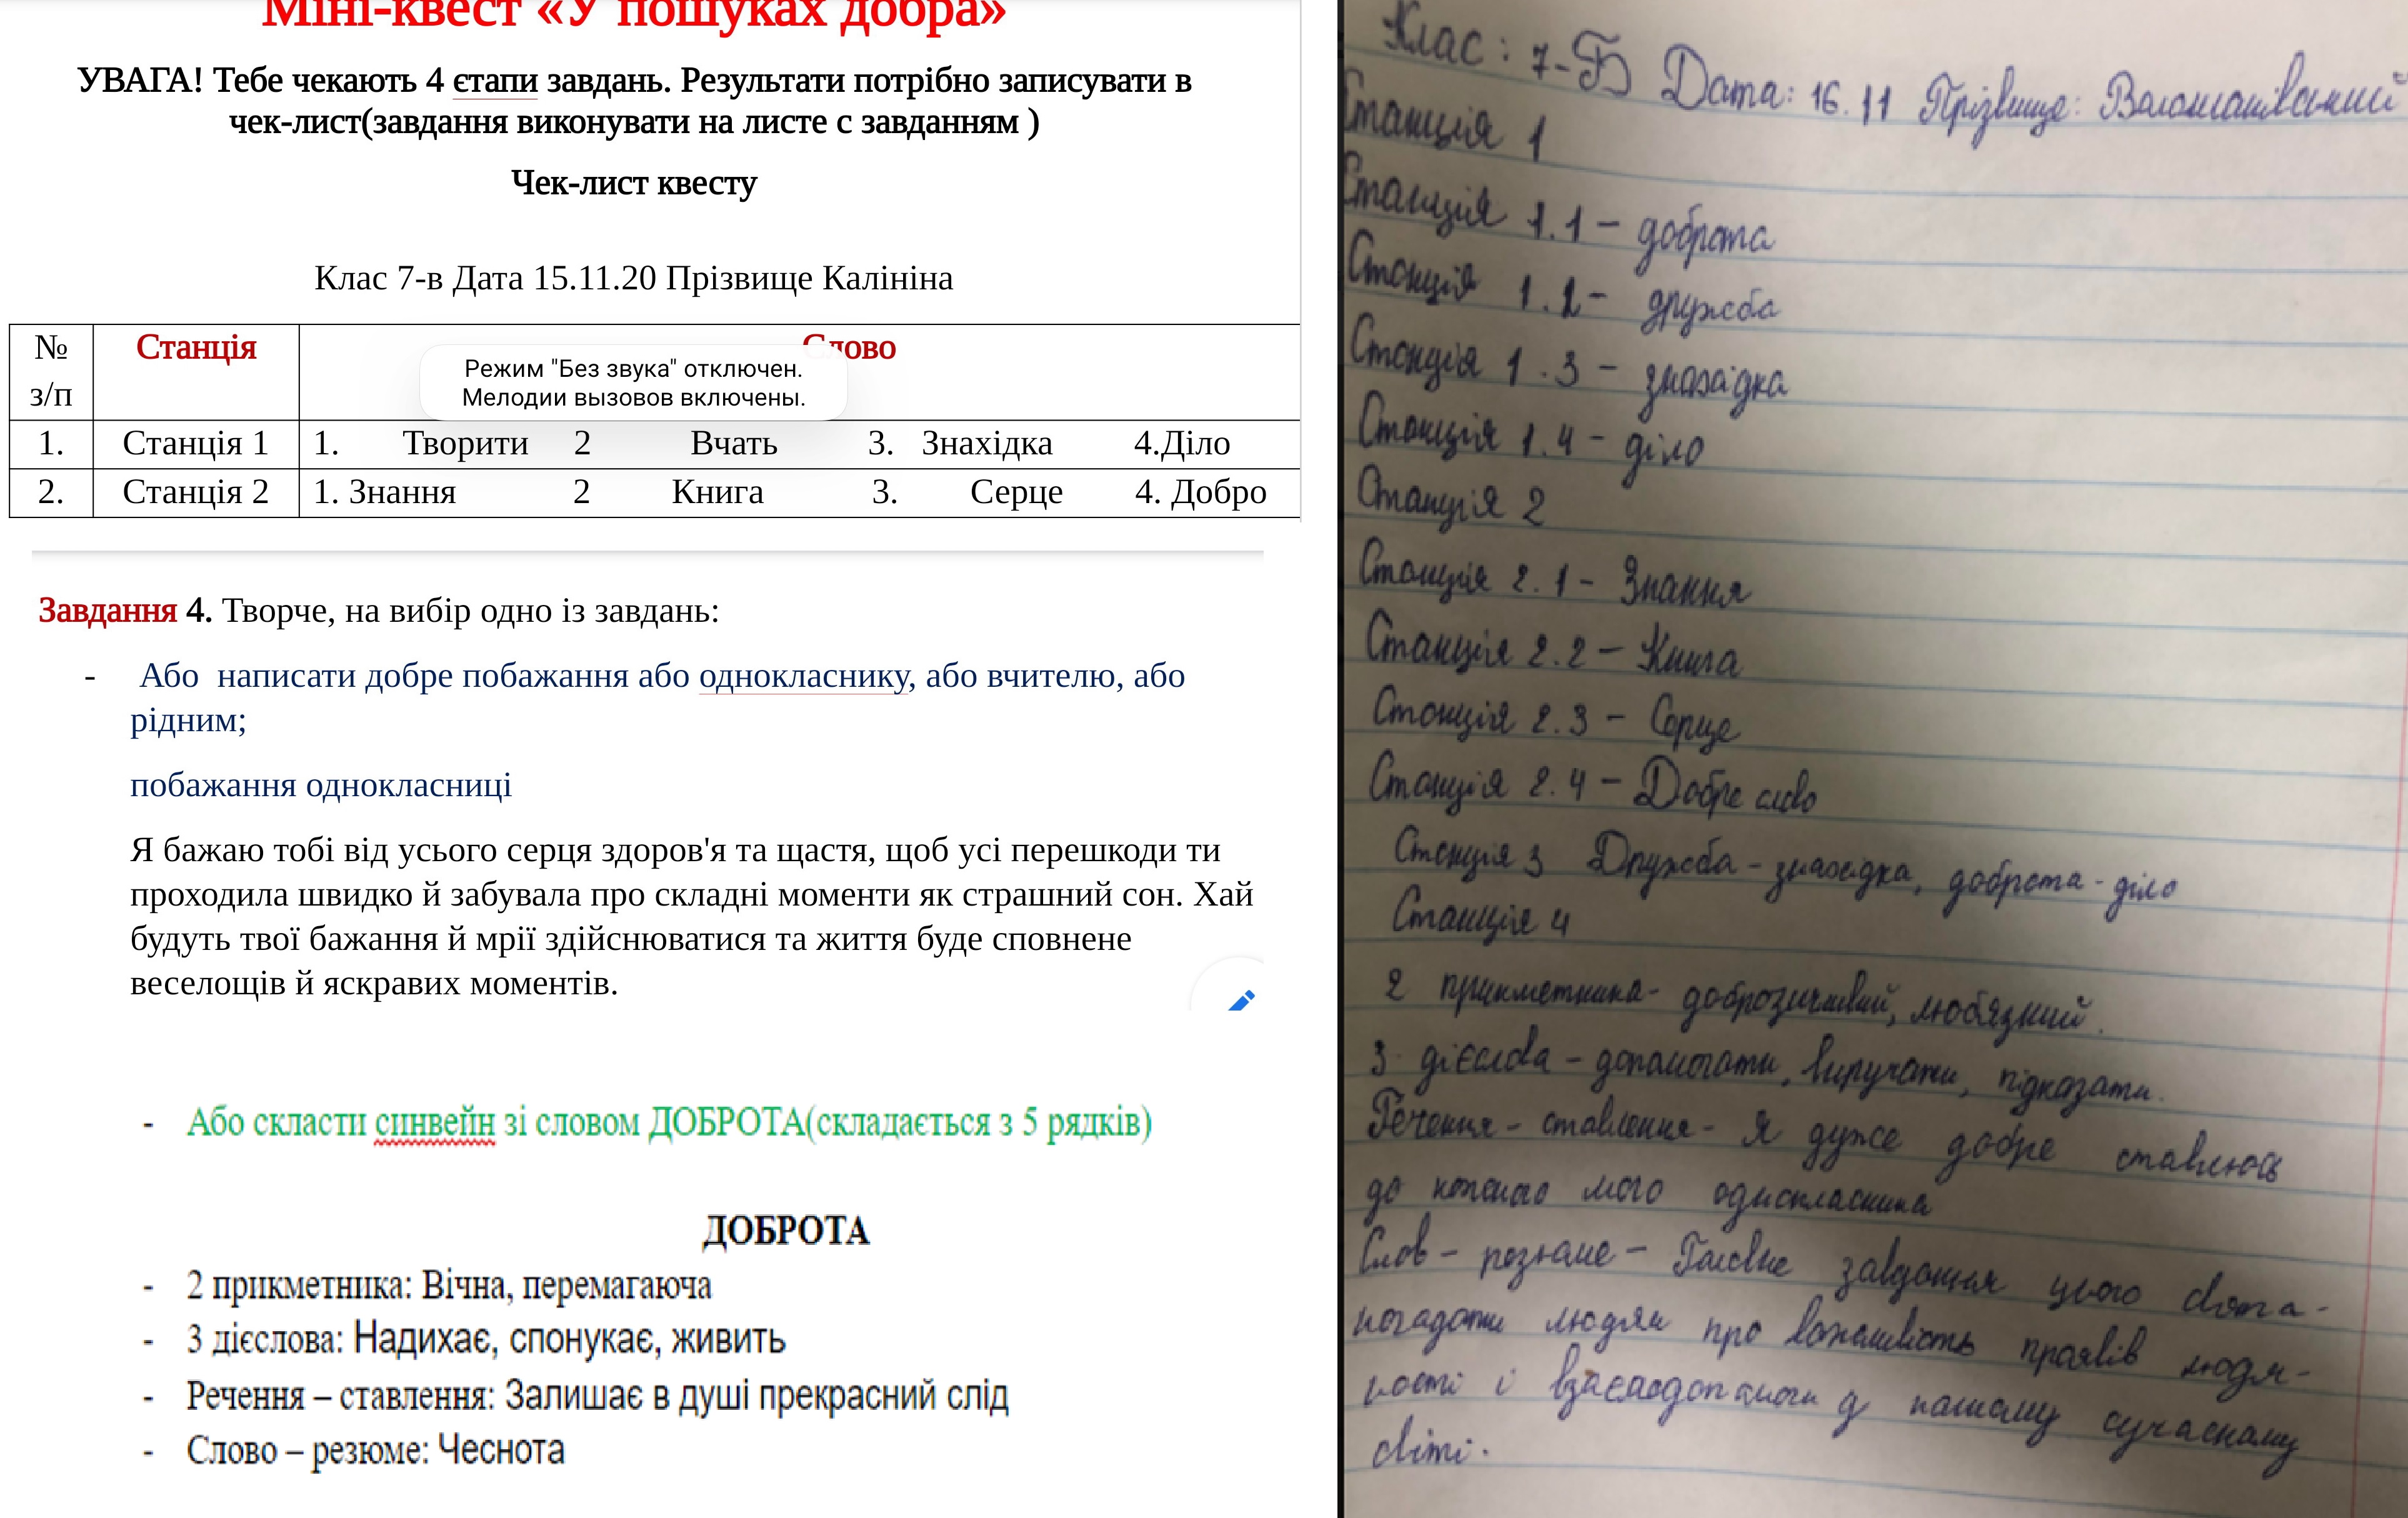 Міні-квест «У пошуках добра»
УВАГА! Тебе чекають 4 єтапи завдань. Результати потрібно записувати в
чек-лист(завдання виконувати на листе с завданням )
Чек-лист квесту
Клас 7-в Дата 15.11.20 Прізвище Калініна
№ з/п Станція Слово
Режим "Без звука" отключен.
Мелодии вызовов включены.
1. Станція 1 1. Творити 2 Вчать 3. Знахідка 4.Діло
2. Станція 2 1. Знання 2 Книга 3. Серце 4. Добро
Завдання 4. Творче, на вибір одно із завдань:
- Або написати добре побажання або однокласнику, або вчителю, або
рідним;
побажання однокласниці
Я бажаю тобі від усього серця здоров'я та щастя, щоб усі перешкоди ти
проходила швидко й забувала про складні моменти як страшний сон. Хай
будуть твої бажання й мрії здійснюватися та життя буде сповнене
веселощів й яскравих моментів.
- Або скласти синвейн зі словом ДОБРОТА(складається з 5 рядків)
ДОБРОТА
- 2 прикметника: Вічна, перемагаюча
- 3 дієслова: Надихає, спонукає, живить
- Речення – ставлення: Залишає в душі прекрасний слід
- Слово – резюме: Чеснота
Клас: 7-Б Дата: 16.11 Прізвище:
Станція 1
Станція 1.1 – доброта
Станція 1.2 – дружба
Станція 1.3 – знахідка
Станція 1.4 – діло
Станція 2
Станція 2.1 – Знання
Станція 2.2 – Книга
Станція 2.3 – Серце
Станція 2.4 – Добре слово
Станція 3 Дружба – знахідка, доброта - діло
Станція 4
2 прикметника- доброзичливий, любязний.
3 дієслова – допомогати, виручати, підказати.
Речення – ставлення - Я дуже добре ставлюсь
до кожного мого однокласника
Слов – резюме – Головне завдання цього свята -
нагадати людям про важливість проявів людя-
ності і взаємодопомоги у нашому сучасному
світі.